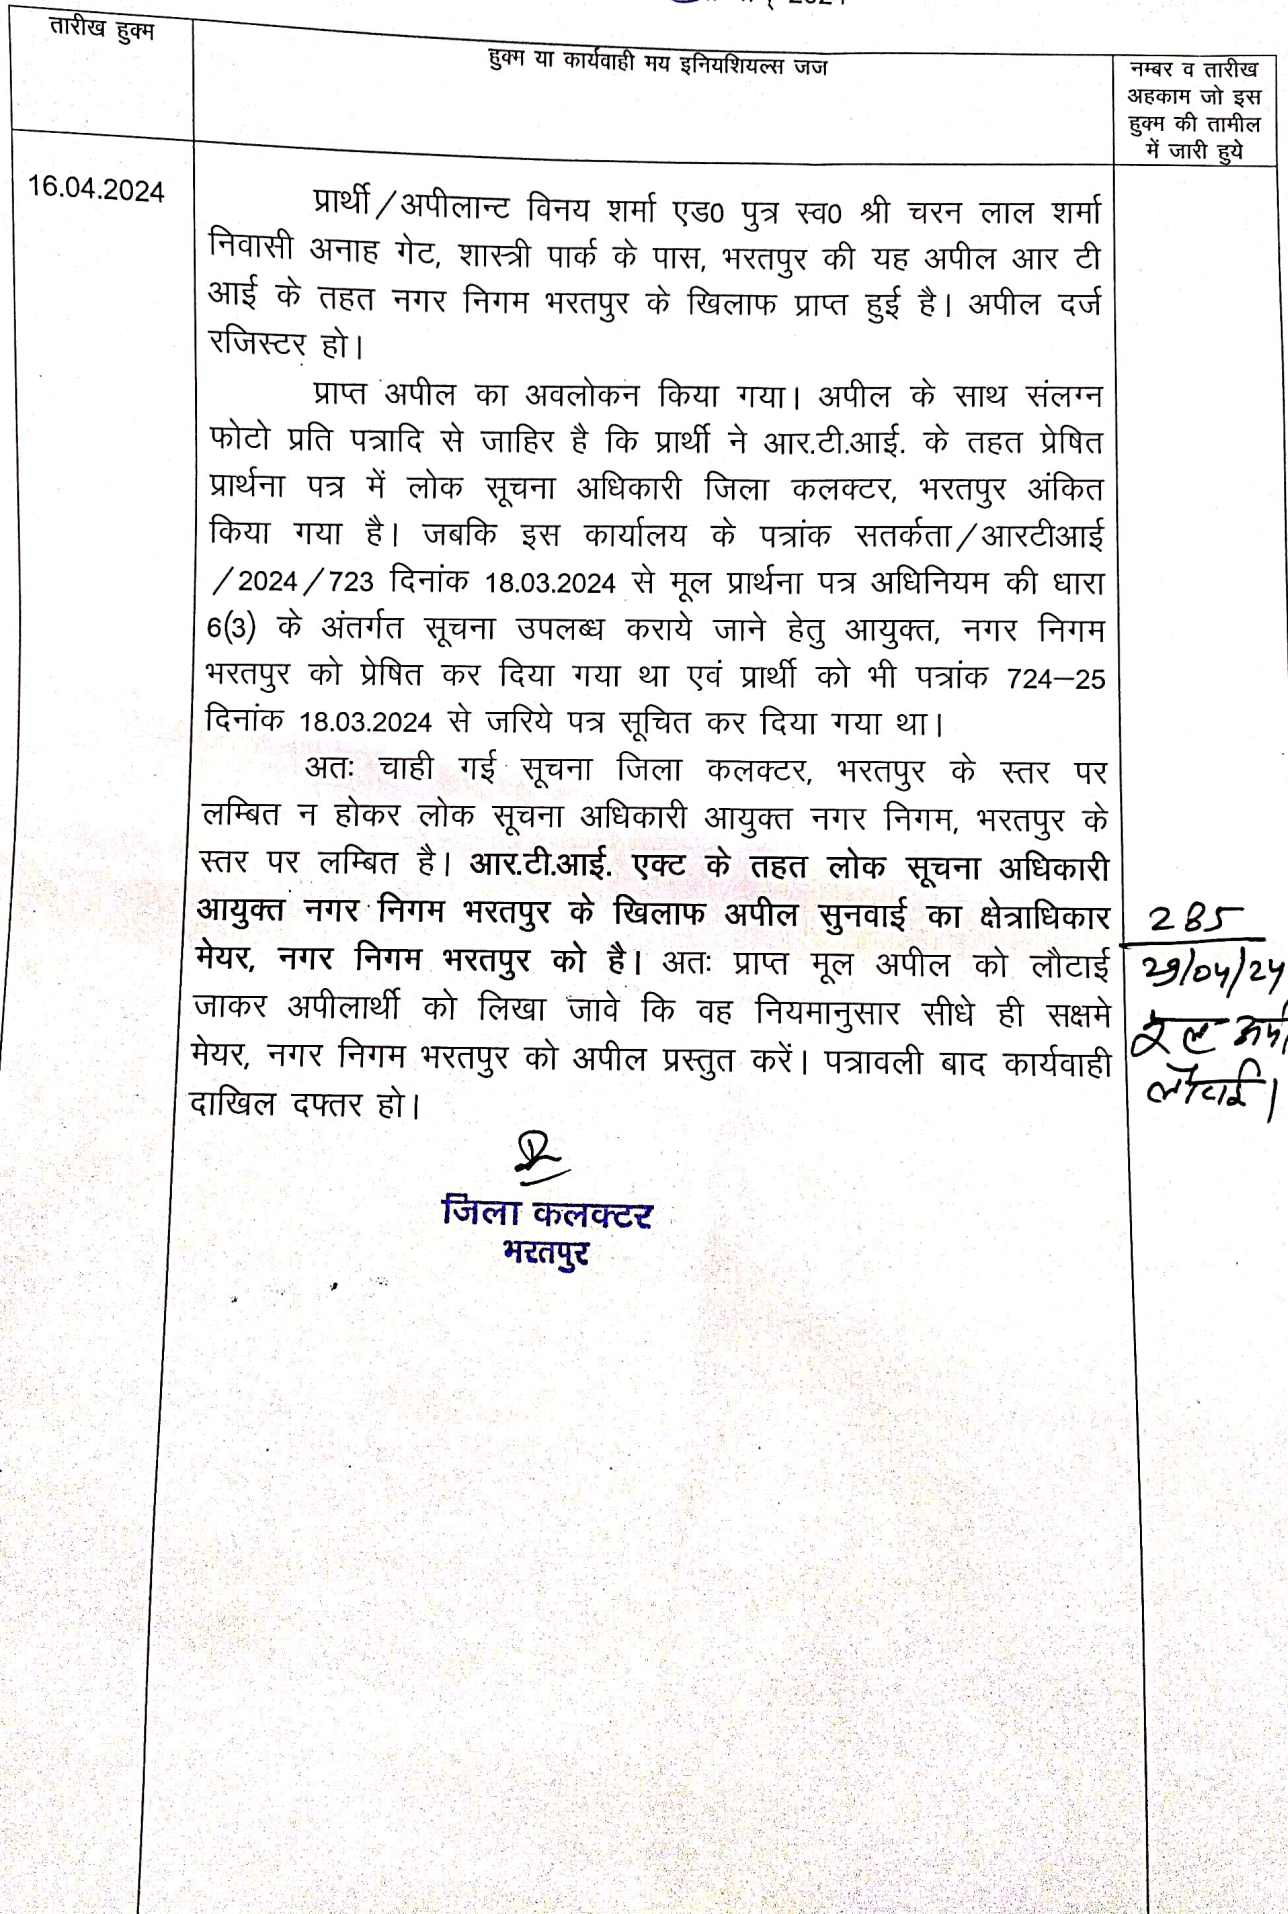 2024
तारीख हुक्म
हुक्म या कार्यवाही मय इनियशियल्स जज
नम्बर व तारीख
अहकाम जो इस
हुक्म की तामील
में जारी हुये
16.04.2024
प्रार्थी/अपीलान्ट विनय शर्मा एड0 पुत्र स्व0 श्री चरन लाल शर्मा
निवासी अनाह गेट, शास्त्री पार्क के पास, भरतपुर की यह अपील आर टी
आई के तहत नगर निगम भरतपुर के खिलाफ प्राप्त हुई है। अपील दर्ज
रजिस्टर हो।
प्राप्त अपील का अवलोकन किया गया। अपील के साथ संलग्न
फोटो प्रति पत्रादि से जाहिर है कि प्रार्थी ने आर.टी.आई. के तहत प्रेषित
प्रार्थना पत्र में लोक सूचना अधिकारी जिला कलक्टर, भरतपुर अंकित
किया गया है। जबकि इस कार्यालय के पत्रांक सतर्कता/आरटीआई
/2024/723 दिनांक 18.03.2024 से मूल प्रार्थना पत्र अधिनियम की धारा
6(3) के अंतर्गत सूचना उपलब्ध कराये जाने हेतु आयुक्त, नगर निगम
भरतपुर को प्रेषित कर दिया गया था एवं प्रार्थी को भी पत्रांक 724–25
दिनांक 18.03.2024 से जरिये पत्र सूचित कर दिया गया था।
अतः चाही गई सूचना जिला कलक्टर, भरतपुर के स्तर पर
लम्बित न होकर लोक सूचना अधिकारी आयुक्त नगर निगम, भरतपुर के
स्तर पर लम्बित है। आर.टी.आई. एक्ट के तहत लोक सूचना अधिकारी
आयुक्त नगर निगम भरतपुर के खिलाफ अपील सुनवाई का क्षेत्राधिकार
मेयर, नगर निगम भरतपुर को है। अतः प्राप्त मूल अपील को लौटाई
जाकर अपीलार्थी को लिखा जावे कि वह नियमानुसार सीधे ही सक्षमे
मेयर, नगर निगम भरतपुर को अपील प्रस्तुत करें। पत्रावली बाद कार्यवाही
दाखिल दफ्तर हो।
285
29/04/24
लौटाई।
जिला कलक्टर
भरतपुर